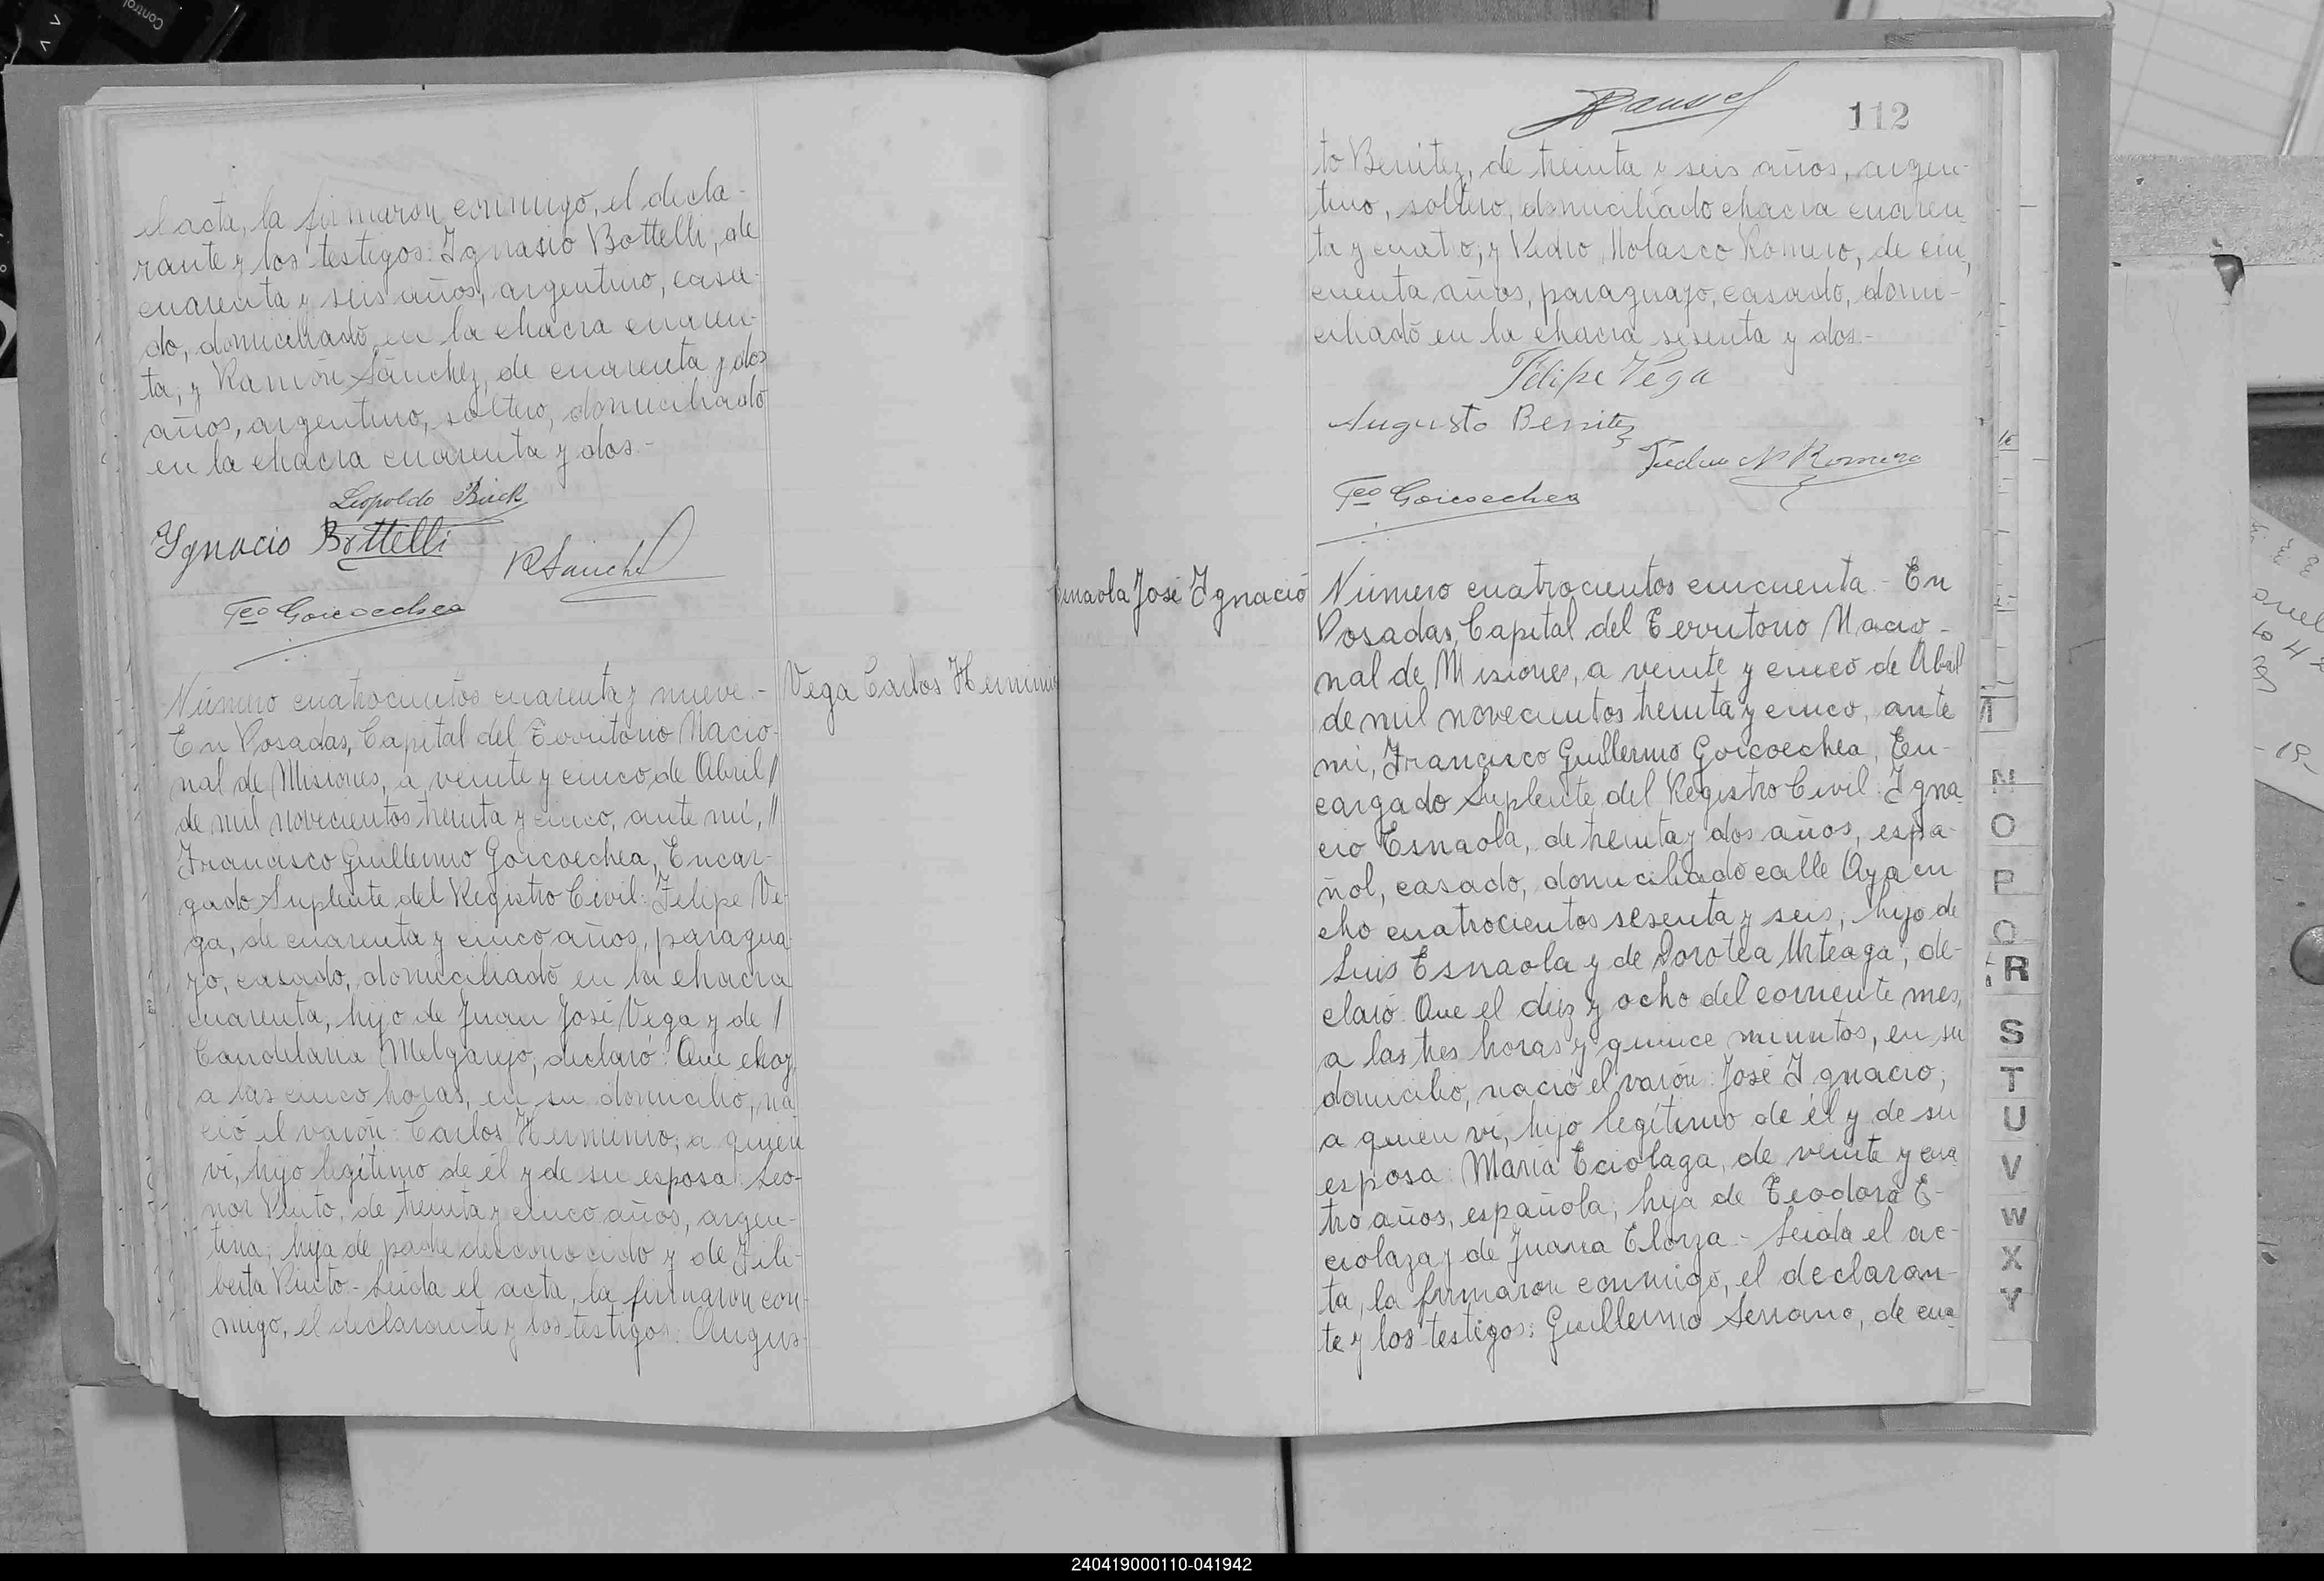 el acta, la firmaron conmigo, el decla-
rante y los testigos: Ignasio Bottelli, de
cuarenta y seis años, argentino, casa-
do, domiciliado en la chacra cuaren-
ta; y Ramón Sánchez, de cuarenta y dos
años, argentino, soltero, domiciliado
en la chacra cuarenta y dos.-
Leopoldo
Ygnacio Bottelli
R Sanche
Fco Goicoechea
Número cuatrocientos cuarenta y nueve.-
Vega Carlos Herminio
En Posadas, Capital del Territorio Nacio-
nal de Misiones, a veinte y cinco de Abril /
de mil novecientos treinta y cinco, ante mí, //
Francisco Guillermo Goicoechea, Encar-
gado Suplente del Registro Civil: Felipe Ve-
ga, de cuarenta y cinco años, paragua-
yo, casado, domiciliado en la chacra
cuarenta, hijo de Juan José Vega y de /
Candelaria Melgarejo, declaró: Que ehoy,
a las cinco horas, en su domicilio, na
ció el varón: Carlos Herminio; a quien
ví, hijo legítimo de él y de su esposa: Leo-
nor Pinto, de treinta y cinco años, argen-
tina; hija de padre desconocido y de Fili-
berta Pinto.- Leída el acta, la firmaron con-
migo, el declarante y los testigos: Augus-
112
to Benitez, de treinta y seis años, argen-
tino, soltero, domiciliado chacra cuaren
ta y cuatro; y Pedro Nolasco Romero, de cin-
cuenta años, paraguayo, casado, domi-
ciliado en la chacra sesenta y dos.-
Felipe Vega
Augusto Benitez
Pedro N Romero
Fco Goicoechea
Esnaola José Ignacio
Número cuatrocientos cincuenta.- En
Posadas, Capital del Territorio Nacio-
nal de Misiones, a veinte y cinco de Abril
de mil novecientos treinta y cinco, ante
mí, Francisco Guillermo Goicoechea, En-
cargado Suplente del Registro Civil: Igna-
cio Esnaola, de treinta y dos años, espa-
ñol, casado, domiciliado calle Ayacu
cho cuatrocientos sesenta y seis; hijo de
Luis Esnaola y de Dorotea Urteaga; de-
claró: Que el diez y ocho del corriente mes,
a las tres horas y quince minutos, en su
domicilio, nació el varón: José Ignacio;
a quien ví, hijo legítimo de él y de su
esposa: María Eciolaga, de veinte y cua-
tro años, española; hija de Teodoro E-
ciolaza y de Juana Elorza.- Leída el ac-
ta, la firmaron conmigo, el declaran-
te y los testigos: Guillermo Serrano, de cua-
N
O
P
Q
R
S
T
U
V
W
X
Y
Control
240419000110-041942